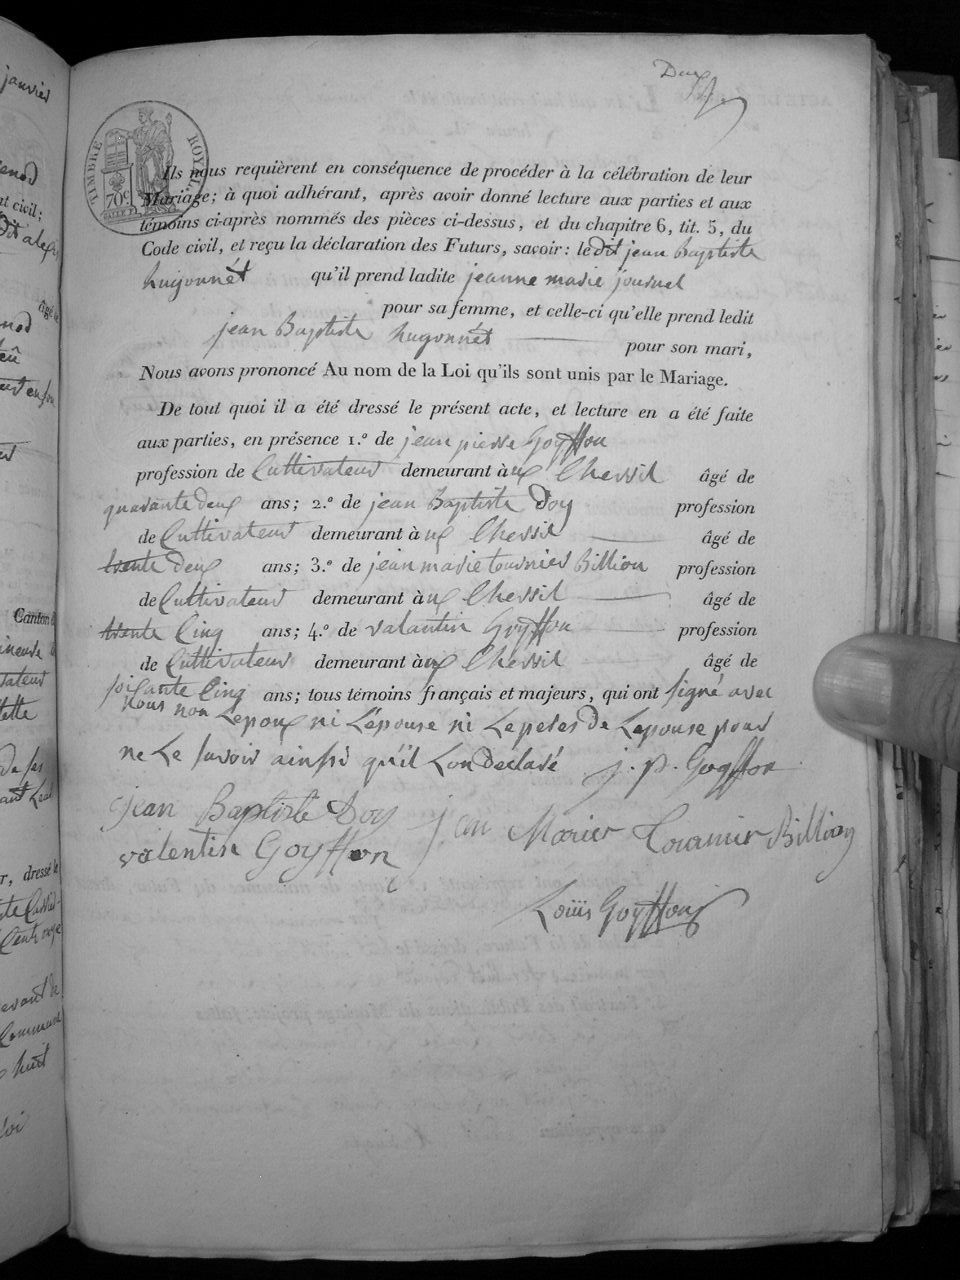 Deux
TIMBRE ROYAL
70c
Ils nous requièrent en conséquence de procéder à la célébration de leur
Mariage; à quoi adhérant, après avoir donné lecture aux parties et aux
témoins ci-après nommés des pièces ci-dessus, et du chapitre 6, tit. 5, du
Code civil, et reçu la déclaration des Futurs, savoir: le dit jean Baptiste
hugonnét qu'il prend ladite jeanne marie journet
pour sa femme, et celle-ci qu'elle prend ledit
jean Baptiste hugonnét pour son mari,
Nous avons prononcé Au nom de la Loi qu'ils sont unis par le Mariage.
De tout quoi il a été dressé le présent acte, et lecture en a été faite
aux parties, en présence 1.º de jean pierre Goyffon
profession de Cultivateur demeurant à Chessil âgé de
quarante deux ans; 2.º de jean Baptiste Doy profession
de Cultivateur demeurant à Chessil âgé de
trente deux ans; 3.º de jean marie tournier Billion profession
de Cultivateur demeurant à Chessil âgé de
trente Cinq ans; 4.º de valantin Goyffon profession
de Cultivateur demeurant à Chessil âgé de
soixante Cinq ans; tous témoins français et majeurs, qui ont signé avec
nous non Lepoux ni Lépouse ni Leperes de Lepouse pour
ne Le savoir ainsi qu'il Lon declaré j. p. Goyffon
jean Baptiste Doy jean Marier Tournier Billion
valentin Goyffon
Loüis Goyffon
janvier
civil;
âgé
Canton
, dressé le
huit